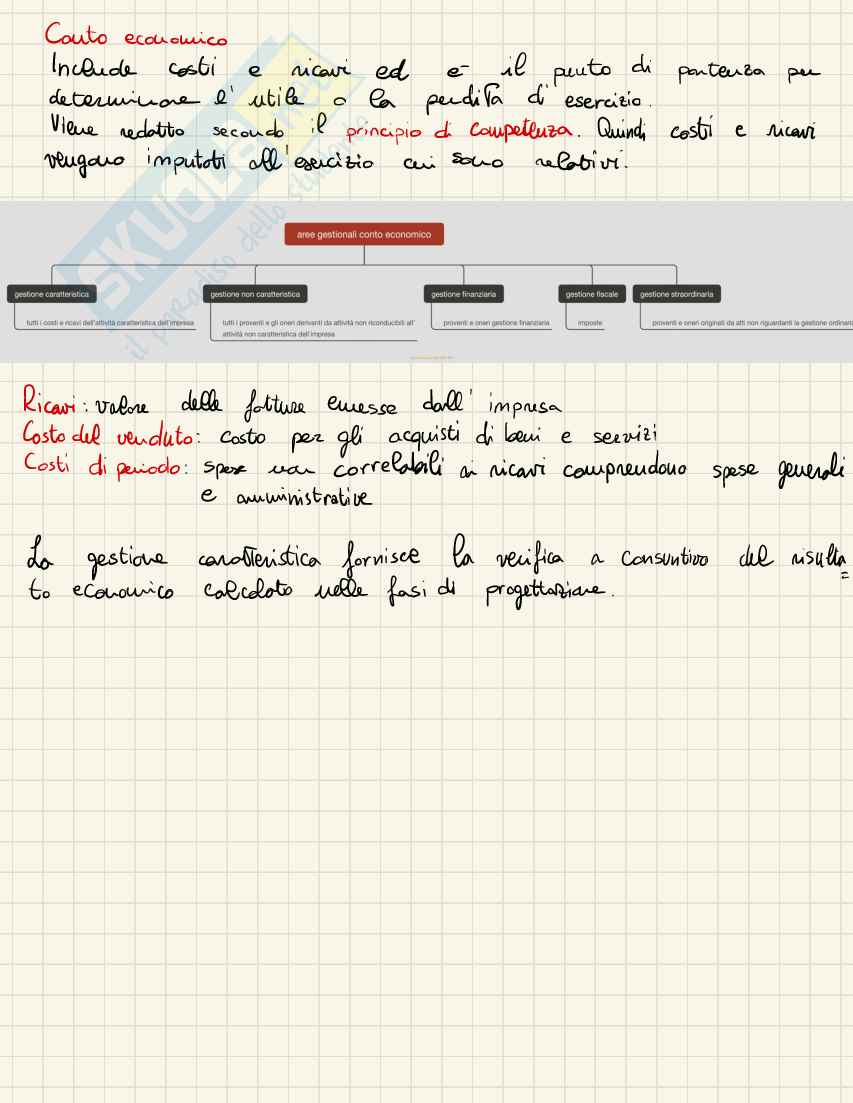 Conto economico
Include costi e ricavi ed e- il punto di partenza per
determinare l'utile o la perdita d'esercizio.
Viene redatto secondo il principio di competenza. Quindi costi e ricavi
vengono imputati all'esercizio cui sono relativi.
SKUOLA.net
il paradiso dello studente
aree gestionali conto economico
gestione caratteristica
gestione non caratteristica
gestione finanziaria
gestione fiscale
gestione straordinaria
tutti i costi e ricavi dell'attività caratteristica dell'impresa
tutti i proventi e gli oneri derivanti da attività non riconducibili all'
attività non caratteristica dell'impresa
proventi e oneri gestione finanziaria
imposte
proventi e oneri originati da atti non riguardanti la gestione ordinari
Ricavi: valore delle fatture emesse dall'impresa
Costo del venduto: costo per gli acquisti di beni e servizi
Costi di periodo: spese non correlabili ai ricavi comprendono spese generali
e amministrative
La gestione caratteristica fornisce la verifica a consuntivo del risulta=
to economico calcolato nelle fasi di progettazione.